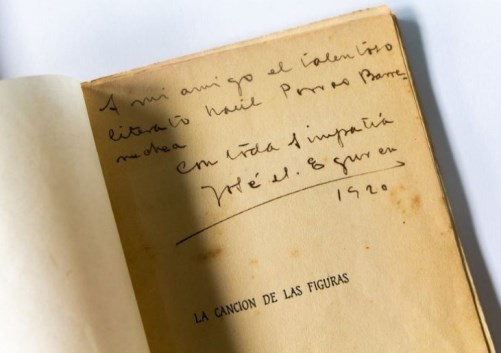 A mi amigo el talentoso
literato Raúl Porras Barre
nechea
con toda simpatía
José M. Eguren
1920
LA CANCION DE LAS FIGURAS